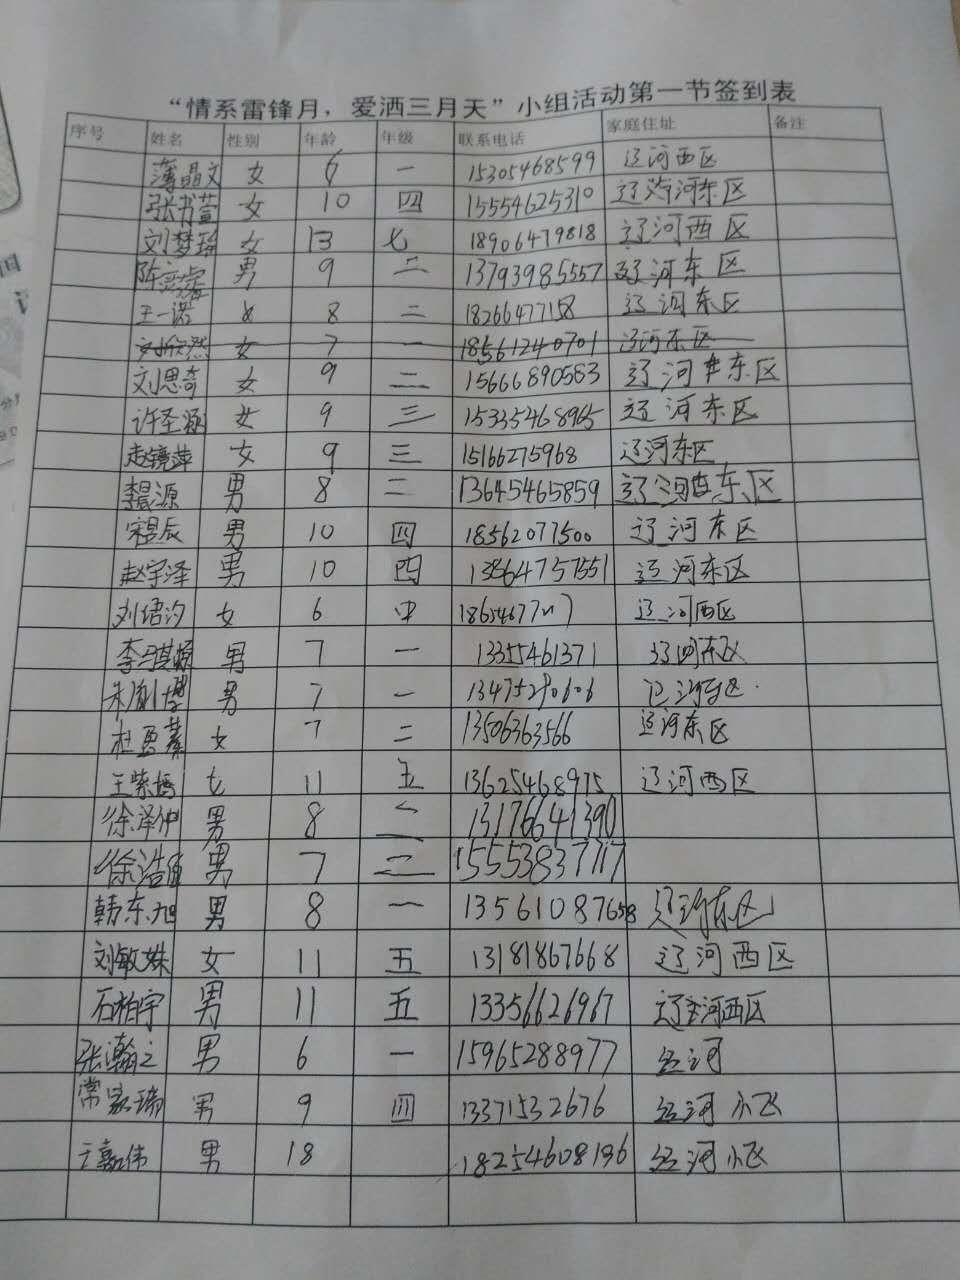 “情系雷锋月，爱洒三月天”小组活动第一节签到表
序号 姓名 性别 年龄 年级 联系电话 家庭住址 备注
薄晶文 女 6 一 15305468599 辽河西区
张书萱 女 10 四 15554625310 辽河东区
刘梦瑶 女 13 七 18906479818 辽河西区
陈 男 9 二 13793985557 辽河东区
王一诺 女 8 二 18266477158 辽河东区
刘欣然 女 7 一 18561240701 辽河东区
刘思奇 女 9 二 15666890583 辽河东区
许圣涵 女 9 三 15335468965 辽河东区
赵镜萍 女 9 三 15166275968 辽河东区
李昆源 男 8 二 13645465859 辽河东区
宋昌辰 男 10 四 18562077500 辽河东区
赵宇泽 男 10 四 13864757551 辽河东区
刘语汐 女 6 中 辽河西区
李骐 男 7 一 13355461371 辽河东区
朱 男 7 一 辽河
杜 女 7 二 13506363566 辽河东区
王紫 女 11 五 13625468975 辽河西区
徐泽 男 8 二 13176641390
徐浩 男 7 二 15553837717
韩东旭 男 8 一 13561087658 辽河东区
刘敏姝 女 11 五 13181867668 辽河西区
石柏宇 男 11 五 13356626967 辽河西区
张瀚之 男 6 一 15965288977 河
常家瑞 男 9 四 13371532676 河小区
伟 男 18 18254608196 河小区